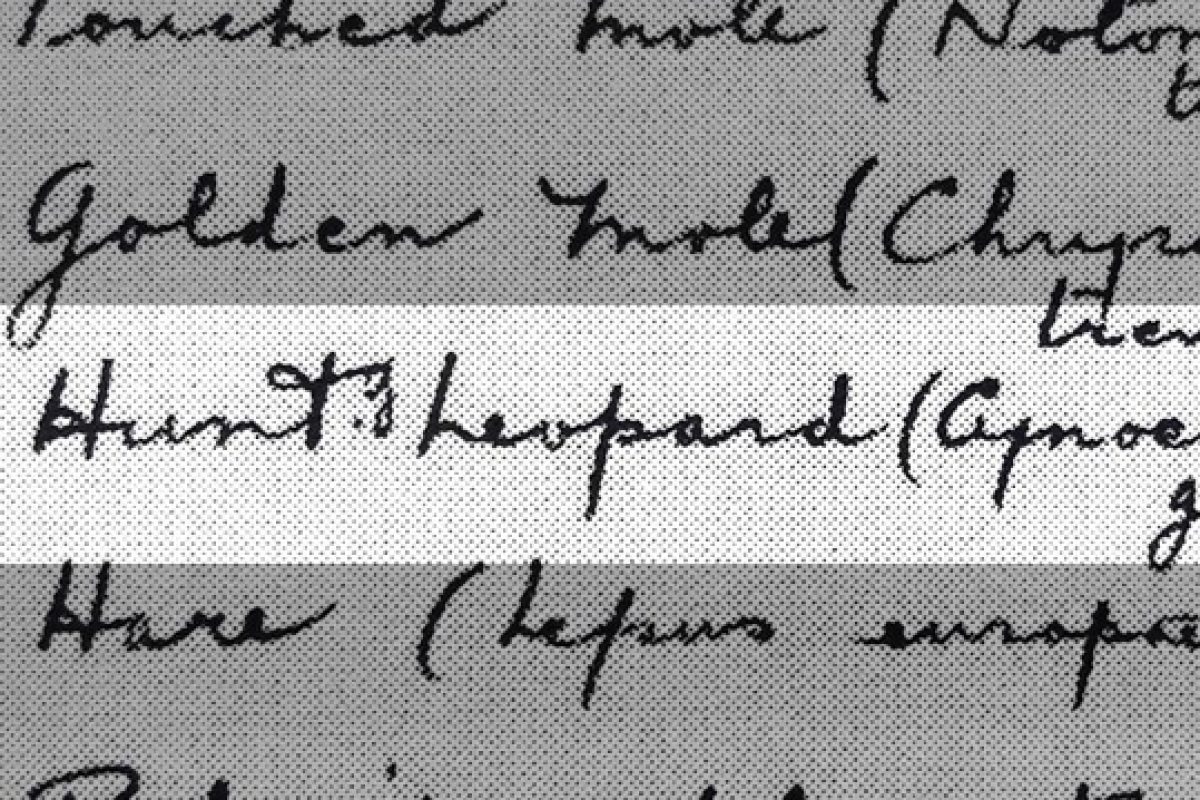 Pouched mole (Noto
Golden Mole (Chrys
Hunt.g Leopard (Cynoe
g
Hare (Lepus europae